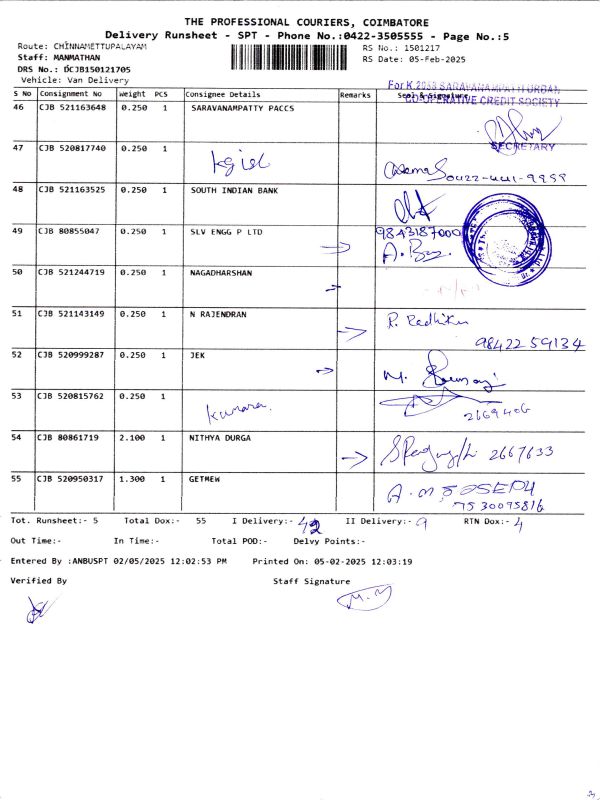 THE PROFESSIONAL COURIERS, COIMBATORE
Delivery Runsheet - SPT - Phone No.:0422-3505555 - Page No.:5
Route: CHINNAMETTUPALAYAM
Staff: MANMATHAN
DRS No.: DCJB150121705
Vehicle: Van Delivery
RS No.: 1501217
RS Date: 05-Feb-2025
S No Consignment No Weight PCS Consignee Details Remarks Seal & Signature
For K.2058 SARAVANAMPATTI URBAN
CO-OPERATIVE CREDIT SOCIETY
46 CJB 521163648 0.250 1 SARAVANAMPATTY PACCS
SECRETARY
47 CJB 520817740 0.250 1
48 CJB 521163525 0.250 1 SOUTH INDIAN BANK
49 CJB 80855047 0.250 1 SLV ENGG P LTD 9843187000
50 CJB 521244719 0.250 1 NAGADHARSHAN
51 CJB 521143149 0.250 1 N RAJENDRAN R. Radhika
98422 59134
52 CJB 520999287 0.250 1 JEK
53 CJB 520815762 0.250 1 2669406
54 CJB 80861719 2.100 1 NITHYA DURGA 2667633
55 CJB 520950317 1.300 1 GETMEW A.M. JOSEPH
7530095816
Tot. Runsheet:- 5 Total Dox:- 55 I Delivery:- 42 II Delivery:- 9 RTN Dox:- 4
Out Time:- In Time:- Total POD:- Delvy Points:-
Entered By :ANBUSPT 02/05/2025 12:02:53 PM Printed On: 05-02-2025 12:03:19
Verified By Staff Signature
M.M